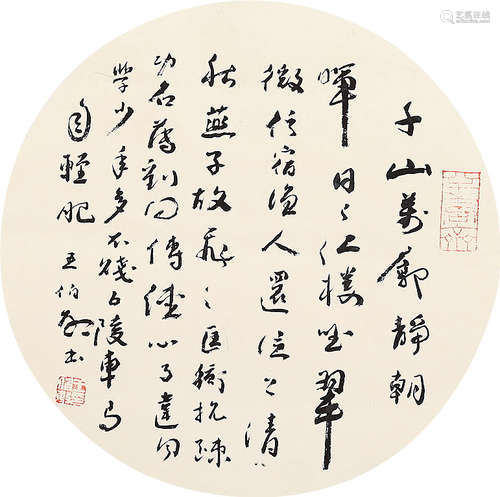 千山萬郭靜朝
暉日〻江樓坐翠
微信宿漁人還泛〻清
秋燕子故飛〻匡衡抗疎
功名薄劉向傳經心事違同
學少年多不賤五陵車馬
自輕肥 王伯敏書